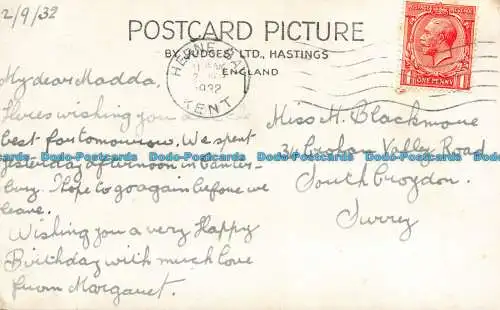 2/9/32
POSTCARD PICTURE
BY JUDGES' LTD., HASTINGS
ENGLAND
HERNE BAY
1932
KENT
ONE PENNY
My dear Madda,
Heres wishing you all the
best for tomorrow. We spent
yesterday afternoon in Canter-
bury. I hope to go again before we
leave.
Wishing you a very Happy
Birthday with much love
from Margaret.
Miss M. Blackmore
34 Croham Valley Road
South Croydon.
Surrey
Dodo-Postcards Dodo-Postcards Dodo-Postcards Dodo-Postcards Dodo-Postcards